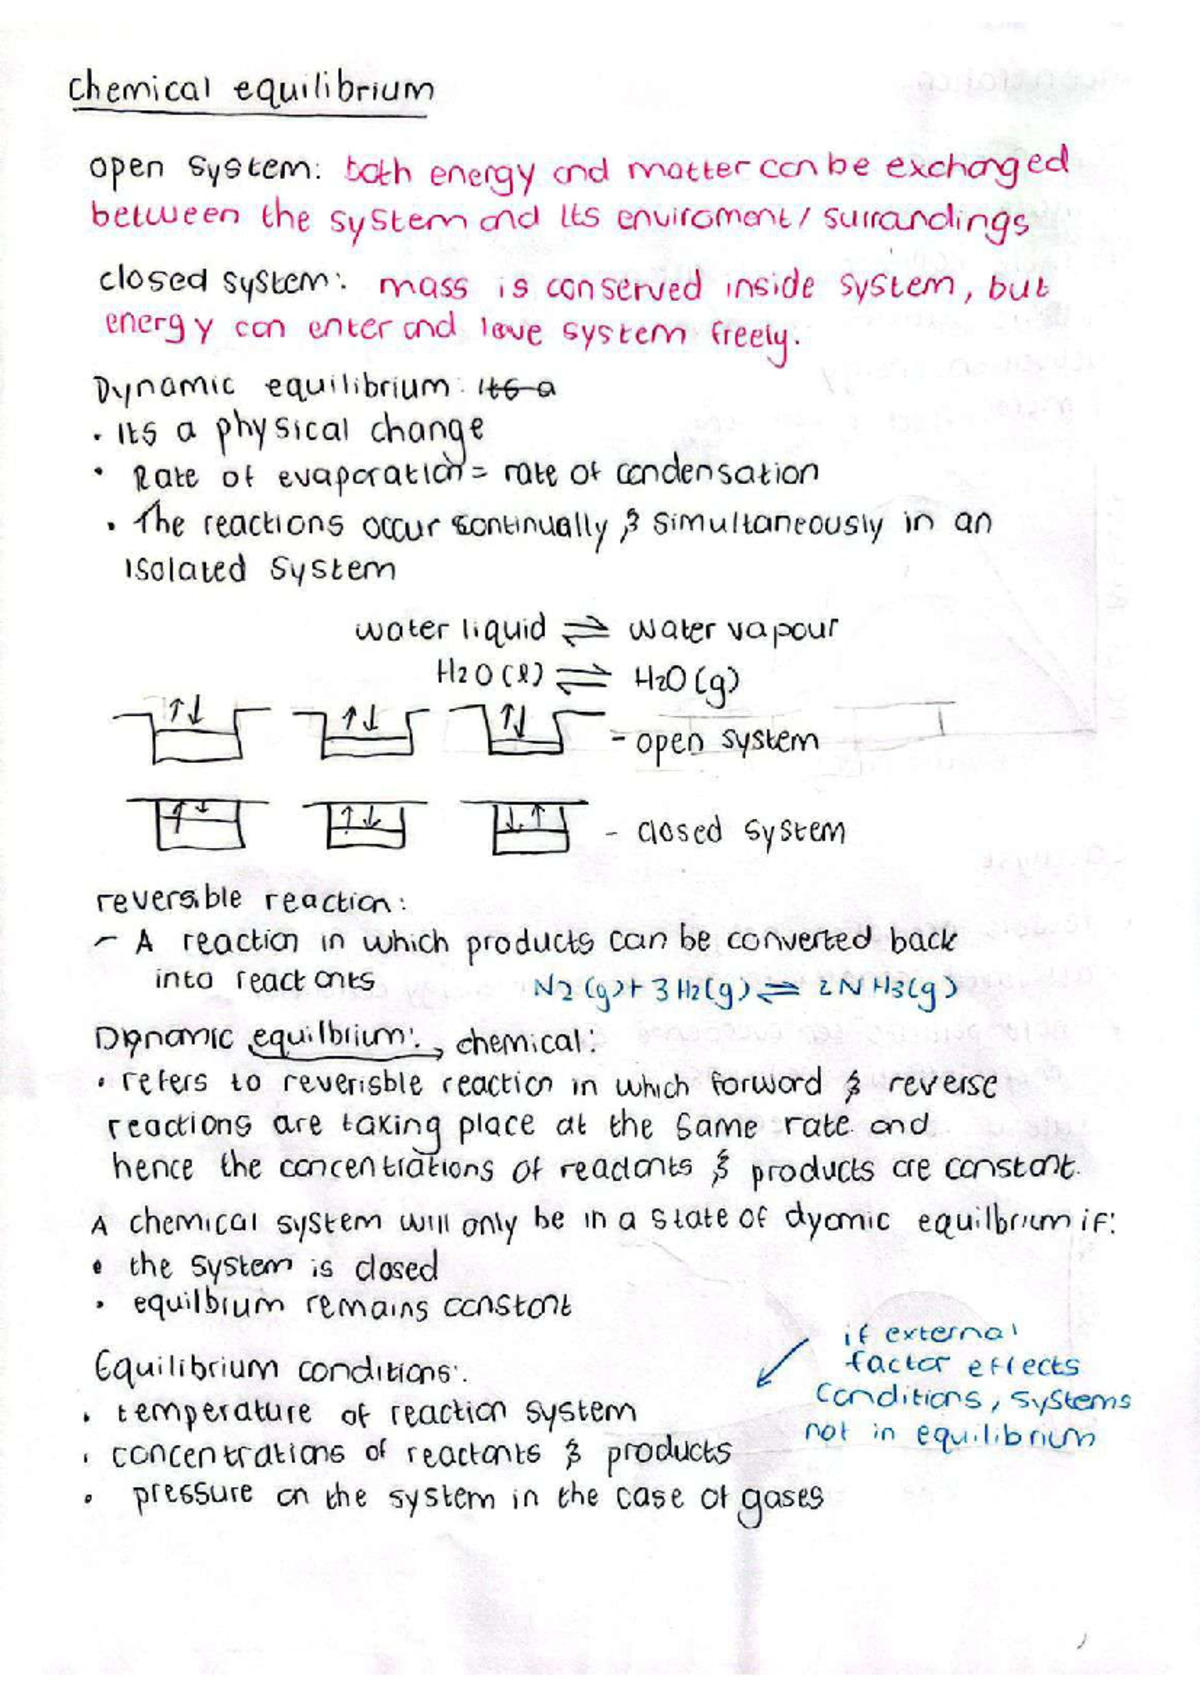 Chemical equilibrium
open system: both energy and matter can be exchanged
between the system and its enviroment/ surrandings
closed system: mass is conserved inside system, but
energy can enter and leave system freely.
Dynamic equilibrium: its a
• Its a physical change
• Rate of evaporation = rate of condensation
• The reactions occur continually & simultaneously in an
isolated system
water liquid ⇌ water vapour
H2O(l) ⇌ H2O(g)
- open system
- closed system
reversible reaction:
- A reaction in which products can be converted back
into reactants N2(g)+3H2(g) ⇌ 2NH3(g)
Dynamic equilbrium: → chemical:
• refers to reverisble reaction in which forward & reverse
reactions are taking place at the same rate and
hence the concentrations of readants & products are constant.
A chemical system will only be in a state of dyamic equilbrium if:
• the system is closed
• equilbium remains constant
Equilibrium conditions:
• temperature of reaction system
• concentrations of reactants & products
• pressure on the system in the case of gases
if external
factor effects
conditions, systems
not in equilibrium